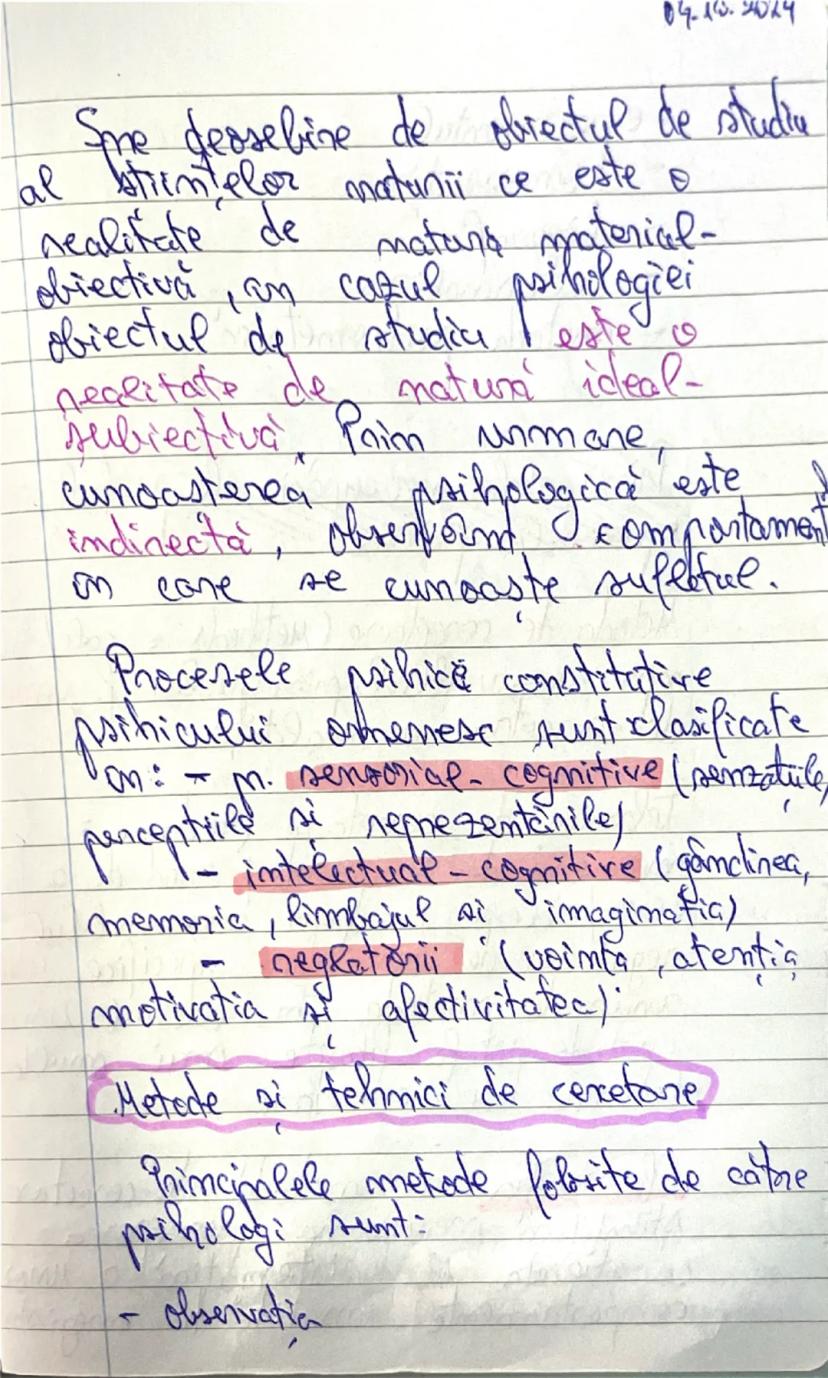 04.10.2024
Spre deosebire de obiectul de studiu
al științelor naturii ce este o
realitate de natură material-
obiectivă, în cazul psihologiei
obiectul de studiu este o
realitate de natură ideal-
subiectivă. Prin urmare,
cunoașterea psihologică este
indirectă, observând comportament
în care se cunoaște sufletul.
Procesele psihice constitutive
psihicului omenesc sunt clasificate
în: - p. senzorial-cognitive (senzațiile,
percepțiile și reprezentările)
- intelectual-cognitive (gândirea,
memoria, limbajul si imaginația)
- reglatorii (voința, atenția,
motivatia și afectivitatea)
Metode și tehnici de cercetare
Principalele metode folosite de către
psihologi sunt:
- observația